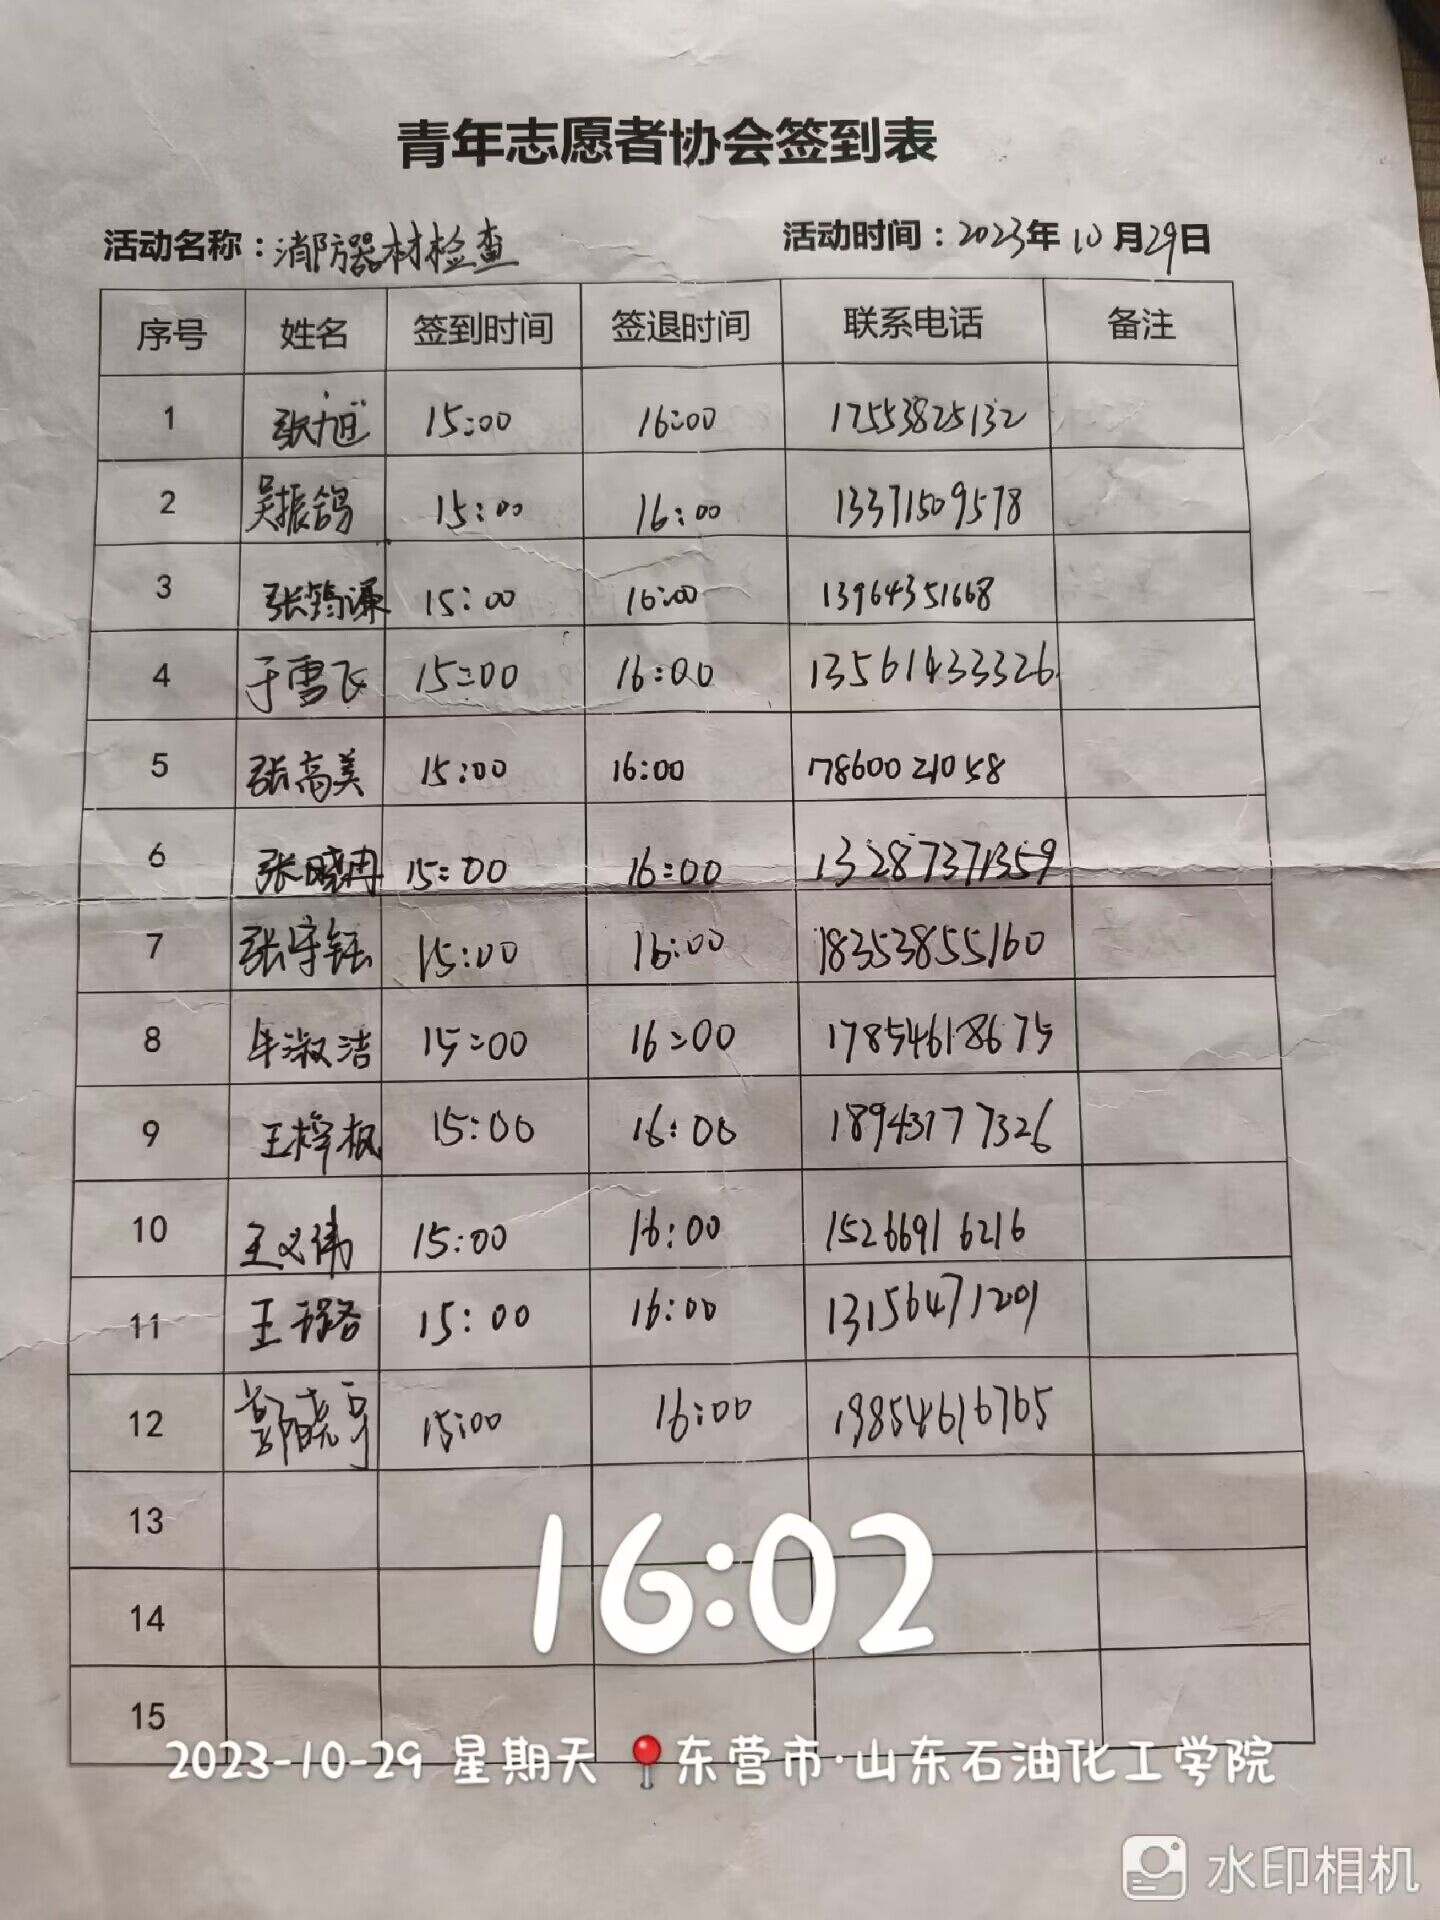 青年志愿者协会签到表
活动名称：消防器材检查 活动时间：2023年10月29日
序号 姓名 签到时间 签退时间 联系电话 备注
1 张旭 15:00 16:00 17553825132
2 吴振鸽 15:00 16:00 13371509578
3 张筠谦 15:00 16:00 13964351668
4 于雪飞 15:00 16:00 13561433326
5 张高美 15:00 16:00 17860021058
6 张晓冉 15:00 16:00 13287371359
7 张宇钰 15:00 16:00 18353855160
8 牟淑洁 15:00 16:00 17854618675
9 王梓枫 15:00 16:00 18943177326
10 王义伟 15:00 16:00 15266916216
11 王璐 15:00 16:00 13156471201
12 郭晓 15:00 16:00 19854616765
13
14
15
16:02
2023-10-29 星期天 东营市·山东石油化工学院
水印相机